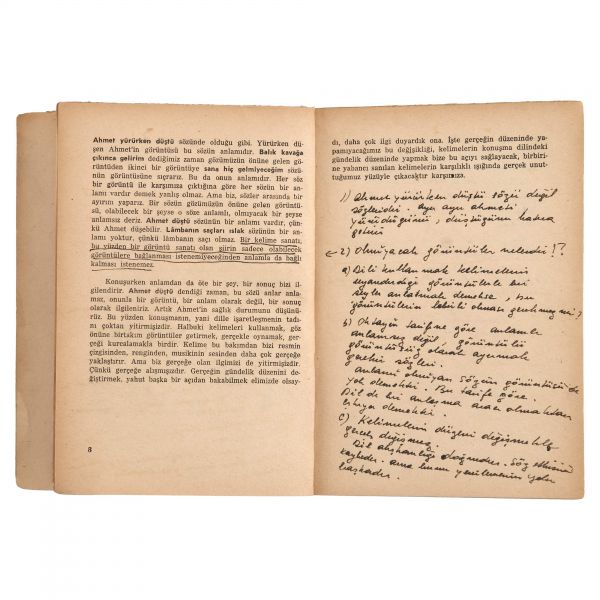 Ahmet yürürken düştü sözünde olduğu gibi. Yürürken dü-
şen Ahmet'in görüntüsü bu sözün anlamıdır. Balık kavağa
çıkınca gelirim dediğimiz zaman gözümüzün önüne gelen gö-
rüntüden ikinci bir görüntüye sana hiç gelmiyeceğim sözü-
nün görüntüsüne sıçrarız. Bu da onun anlamıdır. Her söz
bir görüntü ile karşımıza çıktığına göre her sözün bir an-
lamı vardır demek yanlış olmaz. Ama biz, sözler arasında bir
ayırım yaparız. Bir sözün gözümüzün önüne gelen görüntü-
sü, olabilecek bir şeyse o söze anlamlı, olmıyacak bir şeyse
anlamsız deriz. Ahmet düştü sözünün bir anlamı vardır, çün-
kü Ahmet düşebilir. Lâmbanın saçları ıslak sözünün bir an-
lamı yoktur, çünkü lâmbanın saçı olmaz. Bir kelime sanatı,
bu yüzden bir görüntü sanatı olan şiirin sadece olabilecek
görüntülere bağlanması istenemiyeceğinden anlamla da bağlı
kalması istenemez.
Konuşurken anlamdan da öte bir şey, bir sonuç bizi il-
gilendirir. Ahmet düştü dendiği zaman, bu sözü anlar anla-
maz, onunla bir görüntü, bir anlam olarak değil, bir sonuç
olarak ilgileniriz. Artık Ahmet'in sağlık durumunu düşünü-
rüz. Bu yüzden konuşmanın, yani dille işaretleşmenin tadı-
nı çoktan yitirmişizdir. Halbuki kelimeleri kullanmak, göz
önüne birtakım görüntüler getirmek, gerçekle oynamak, ger-
çeği kurcalamakla birdir. Kelime bu bakımdan bizi resmin
çizgisinden, renginden, musikinin sesinden daha çok gerçeğe
yaklaştırır. Ama biz gerçeğe olan ilgimizi de yitirmişizdir.
Çünkü gerçeğe alışmışızdır. Gerçeğin gündelik düzenini de-
ğiştirmek, yahut başka bir açıdan bakabilmek elimizde olsay-
8
dı, daha çok ilgi duyardık ona. İşte gerçeğin düzeninde ya-
pamıyacağımız bu değişikliği, kelimelerin konuşma dilindeki
gündelik düzeninde yapmak bize bu açıyı sağlayacak, birbiri-
ne yabancı sanılan kelimelerin karşılıklı ışığında gerçek unut-
tuğumuz yüzüyle çıkacaktır karşımıza.
1) Ahmet yürürken düştü sözü değil
sözleridir. Ayrı ayrı ahmeti
yürüdüğünü, düştüğünün hatıra
gelir
2) Olmıyacak görüntüler nelerdir!?
a) Dili kullanmak kelimelerin
uyandırdığı görüntülerle bir
şeyler anlatmak demekse, bu
görüntülerin olması gerekmez mi?
b) Oktayın tarifine göre anlamlı
anlamsız değil, görüntülü
görüntüsüz olarak ayırmak
gerekir sözleri.
anlamı olmıyan sözün görüntüsü de
yok demektir. Bu tarife göre.
Dil de bir anlaşma aracı olmaktan
çıkıyor demektir.
c) Kelimelerin düzeni değişmekle
gerçek değişmez.
Dil alışkanlığı doğmadan. Söz etkisini
kaybeder. ama bunun yenilemenin yolu
başkadır.